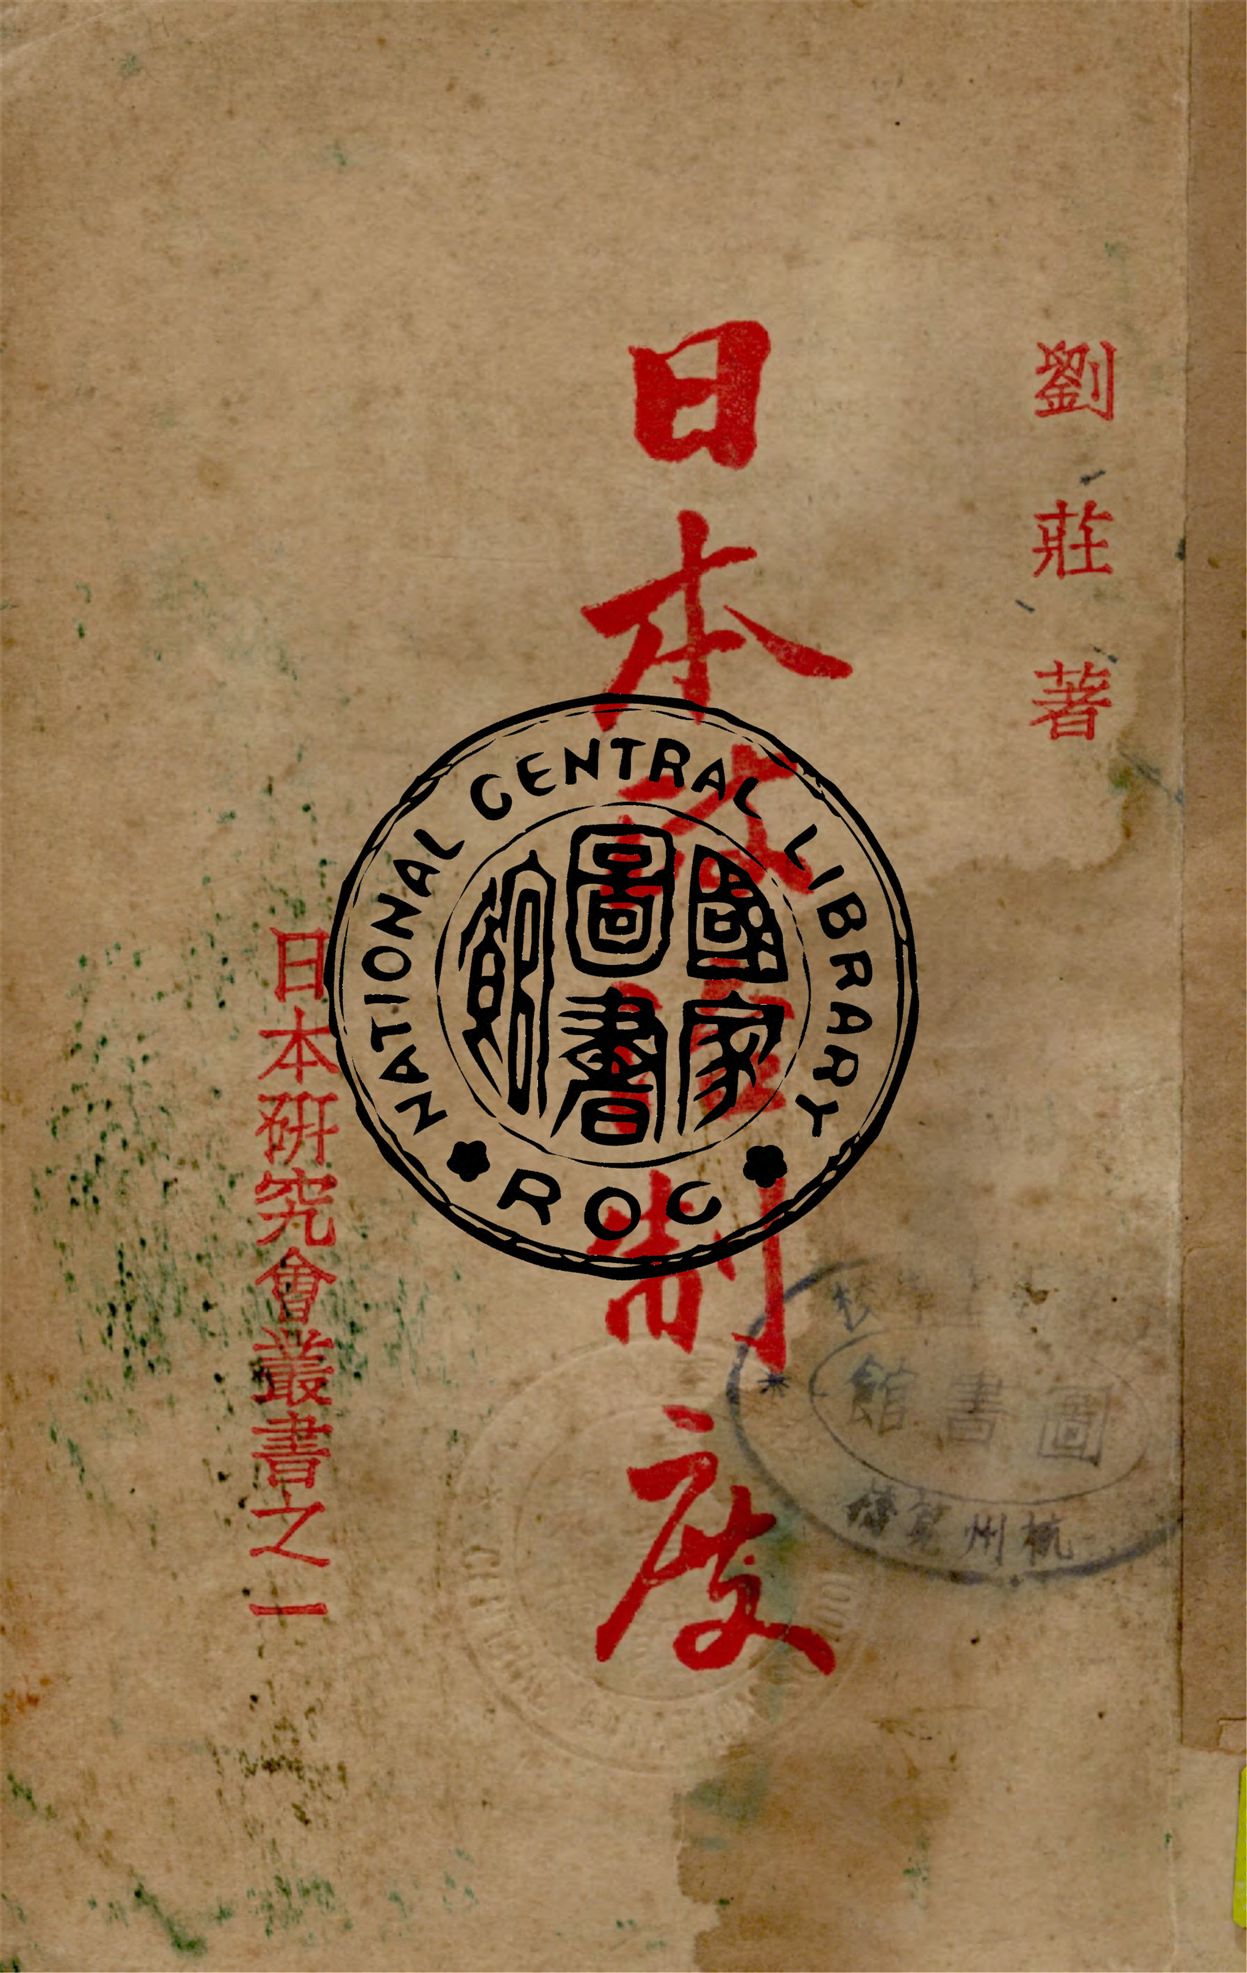 劉莊著
日本制度
日本研究會叢書之一
NATIONAL CENTRAL LIBRARY
國家圖書館
ROC
圖書館
杭州筧橋